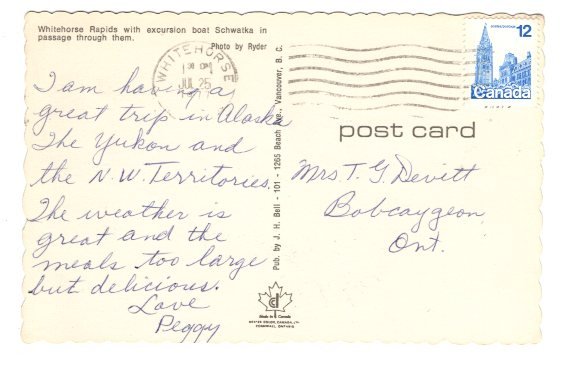 Whitehorse Rapids with excursion boat Schwatka in
passage through them.
Photo by Ryder
WHITEHORSE
JUL 25
12
Canada
post card
I am having a
great trip in Alaska
The Yukon and
the N.W. Territories.
The weather is
great and the
meals too large
but delicious.
Love
Peggy
Pub. by J. H. Bell - 101 - 1265 Beach Ave., Vancouver, B. C.
Mrs T. G. Devitt
Bobcaygeon,
Ont.
Made in Canada